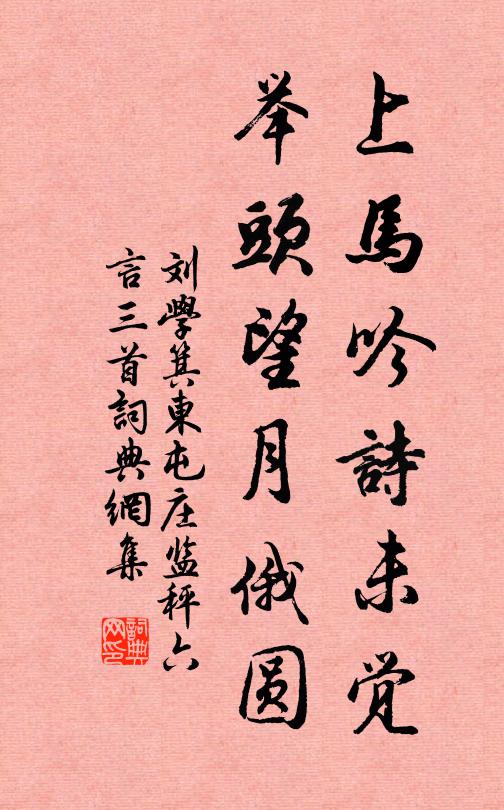 上馬吟詩未觉
举頭望月俄圆
刘學箕東屯庄监秤六
言三首詞典網集
詞典
网印